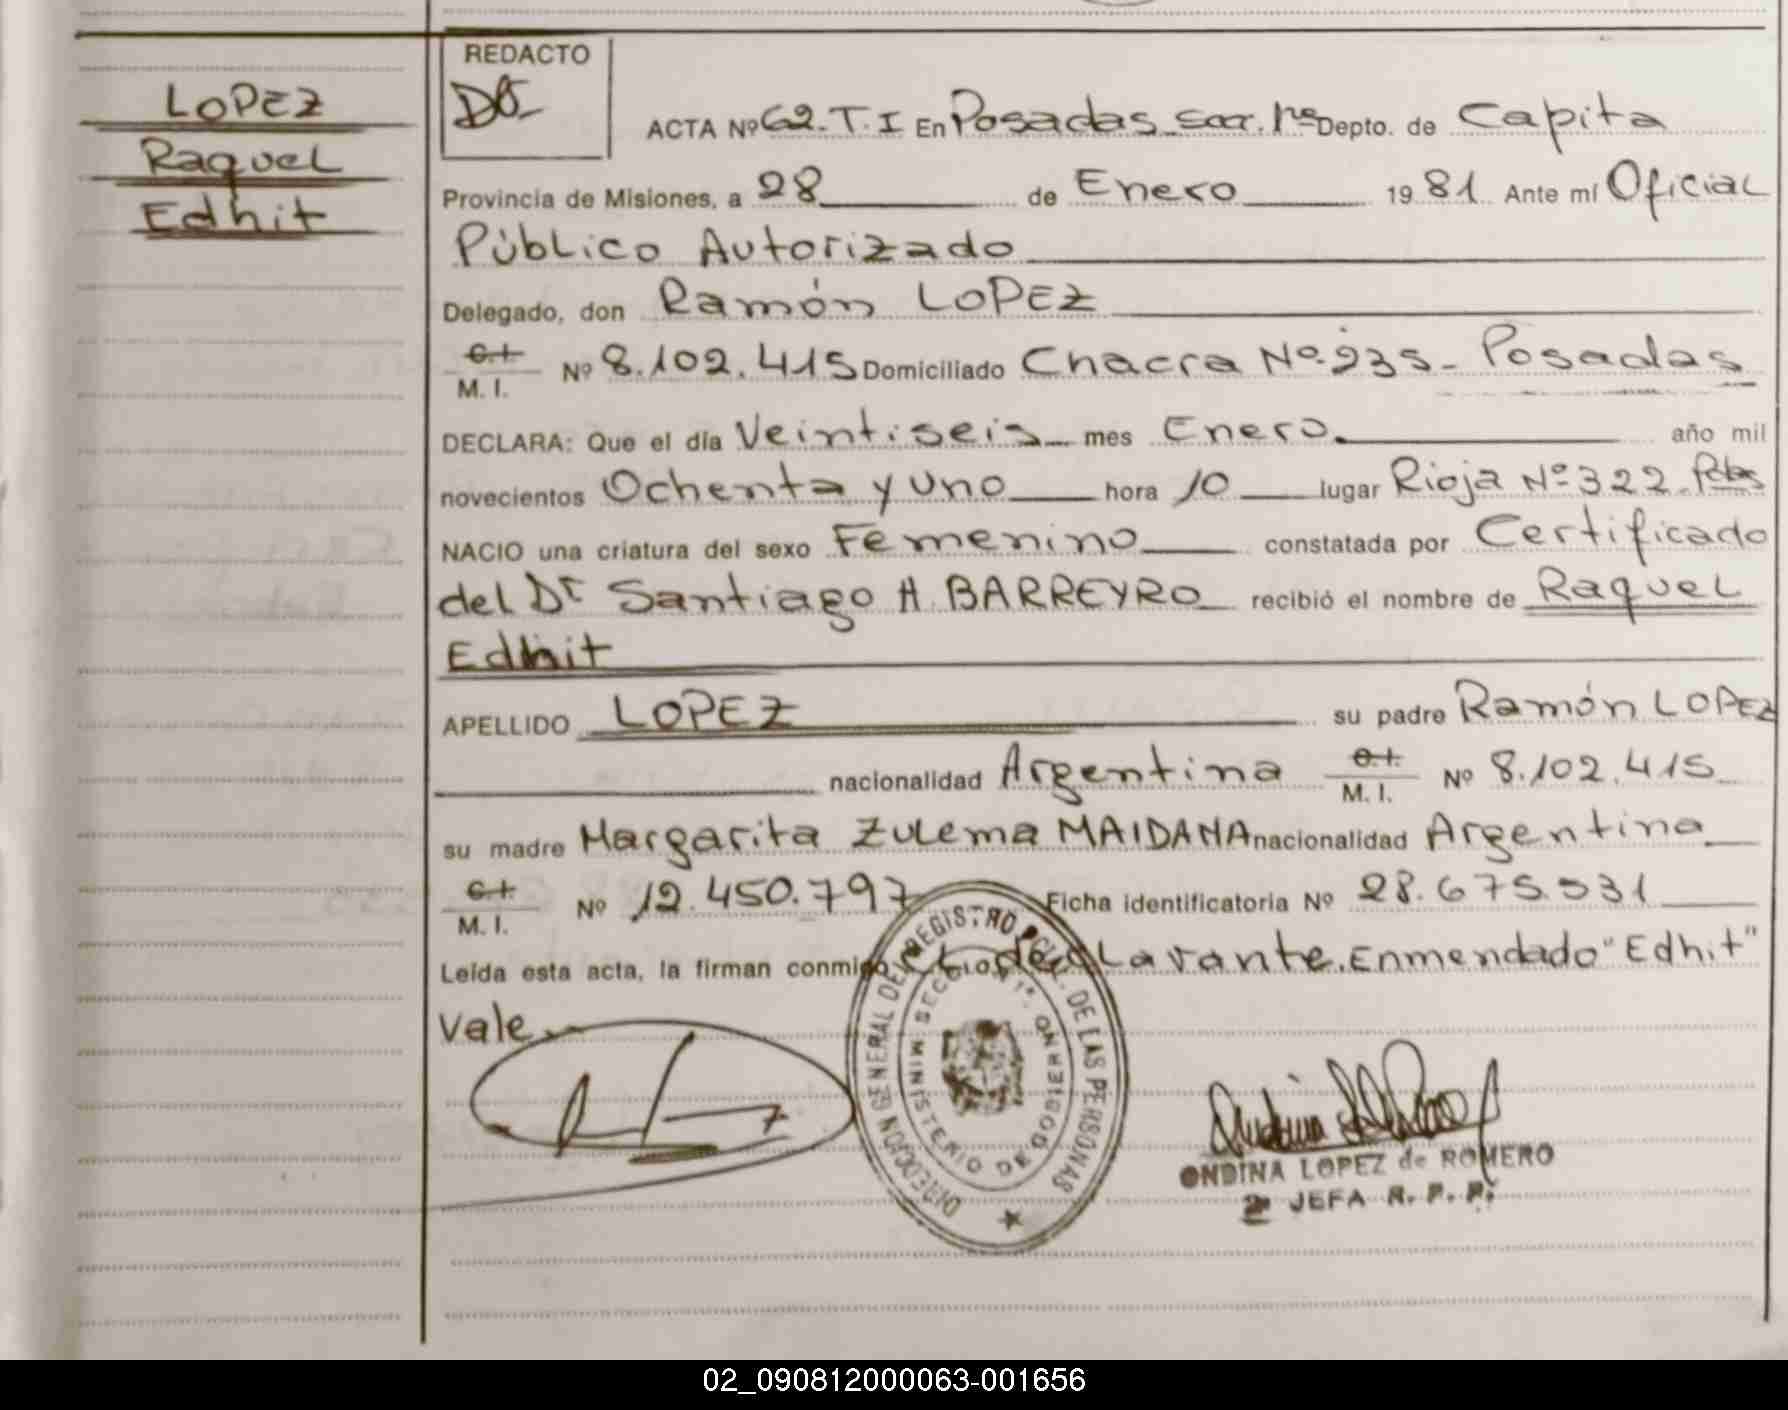 LOPEZ
Raquel
Edhit
REDACTO
ACTA Nº 62. T. I En Posadas Secc. 1ª Depto. de Capita
Provincia de Misiones, a 28 de Enero 1981. Ante mí Oficial
Público Autorizado
Delegado, don Ramón LOPEZ
C.I.
M. I. Nº 8.102.415 Domiciliado Chacra Nº 235 - Posadas
DECLARA: Que el día Veintiseis mes Enero. año mil
novecientos Ochenta y uno hora 10 lugar Rioja Nº 322. Pdas
NACIO una criatura del sexo Femenino constatada por Certificado
del Dr Santiago A. BARREYRO recibió el nombre de Raquel
Edhit
APELLIDO LOPEZ su padre Ramón LOPEZ
nacionalidad Argentina C.I.
M. I. Nº 8.102.415
su madre Margarita Zulema MAIDANA nacionalidad Argentina
C.I.
M. I. Nº 12.450.797 Ficha identificatoria Nº 28.675.531
Leída esta acta, la firman conmigo, el declarante. Enmendado "Edhit"
Vale
DIRECCION GENERAL DEL REGISTRO PCIAL. DE LAS PERSONAS
MINISTERIO DE GOBIERNO
SECCION 1ª.
ONDINA LOPEZ de ROMERO
2ª JEFA R. P. P.
02_090812000063-001656